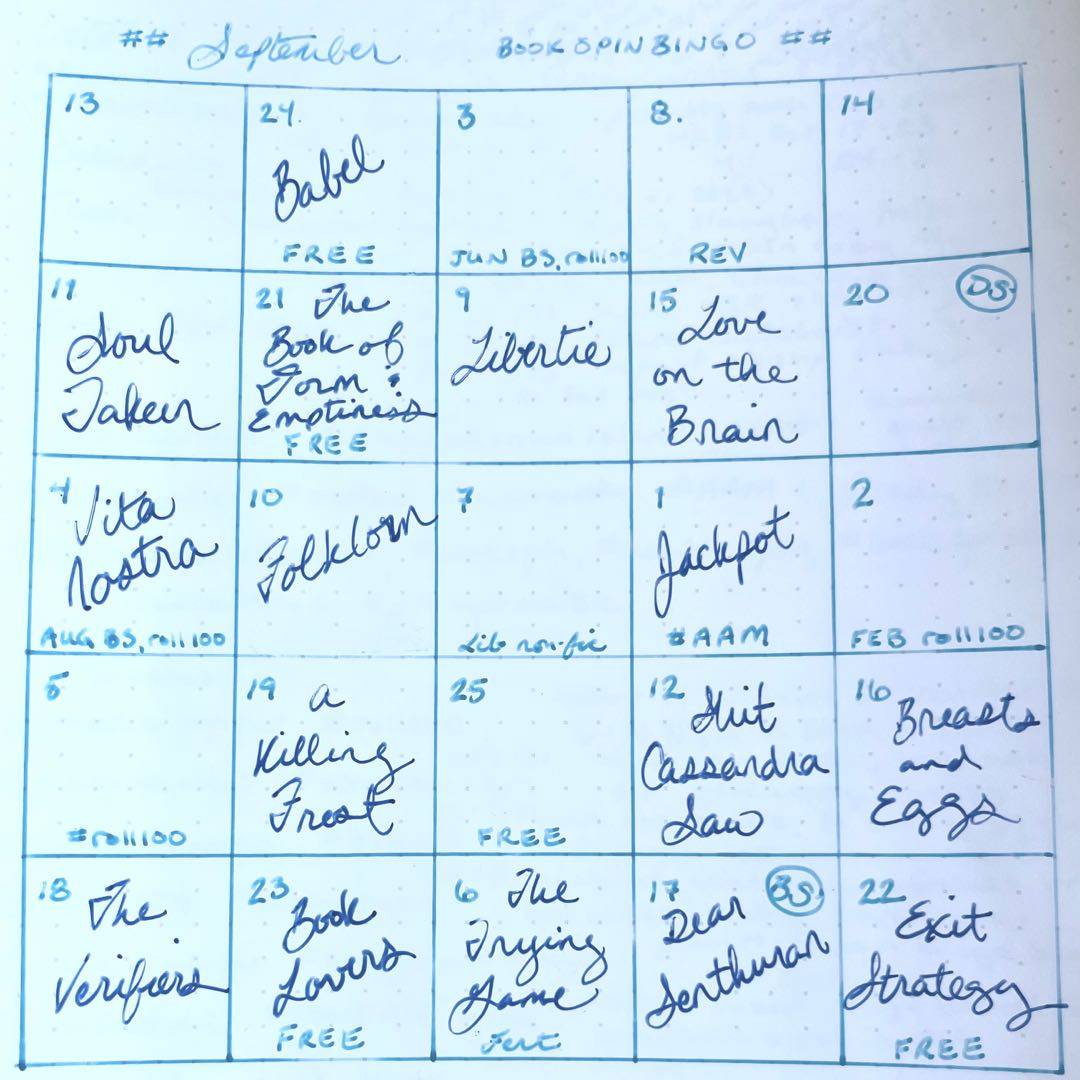 ## September BOOKSPINBINGO ##
13
24.
Babel
FREE
3
JUN BS, roll100
8.
REV
14
11
Soul
Taken
21 The
Book of
Form &
Emptiness
FREE
9
Libertie
15
Love
on the
Brain
20 DS.
4
Vita
Nostra
AUG BS, roll100
10
Folklorn
7
Lib non-fic
1
Jackpot
#AAM
2
FEB roll100
5
#roll100
19 A
Killing
Frost
25
FREE
12 Shit
Cassandra
Saw
16
Breasts
and
Eggs
18 The
Verifiers
23.
Book
Lovers
FREE
6 The
Trying
Game
Fert
17 BS.
Dear
Senthuran
22
Exit
Strategy
FREE